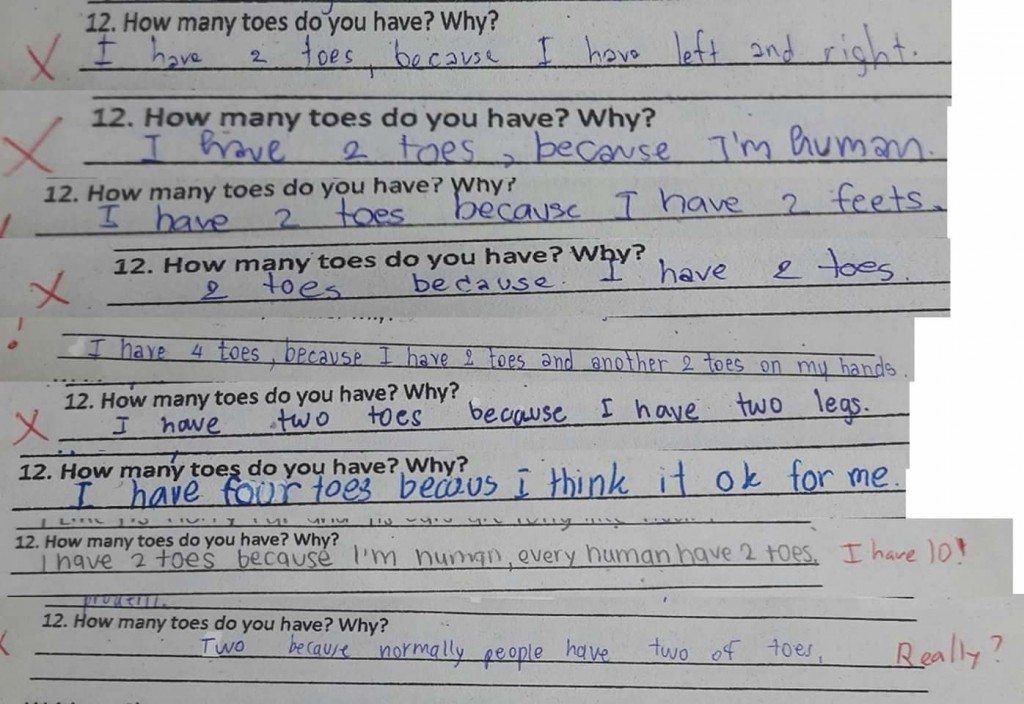 12. How many toes do you have? Why?
I have 2 toes, because I have left and right.
12. How many toes do you have? Why?
I have 2 toes, because I'm human.
12. How many toes do you have? Why?
I have 2 toes because I have 2 feets.
12. How many toes do you have? Why?
2 toes because. I have 2 toes.
I have 4 toes, because I have 2 toes and another 2 toes on my hands.
12. How many toes do you have? Why?
I have two toes because I have two legs.
12. How many toes do you have? Why?
I have four toes becaus i think it ok for me.
12. How many toes do you have? Why?
I have 2 toes because I'm human, every human have 2 toes. I have 10!
12. How many toes do you have? Why?
Two because normally people have two of toes. Really?